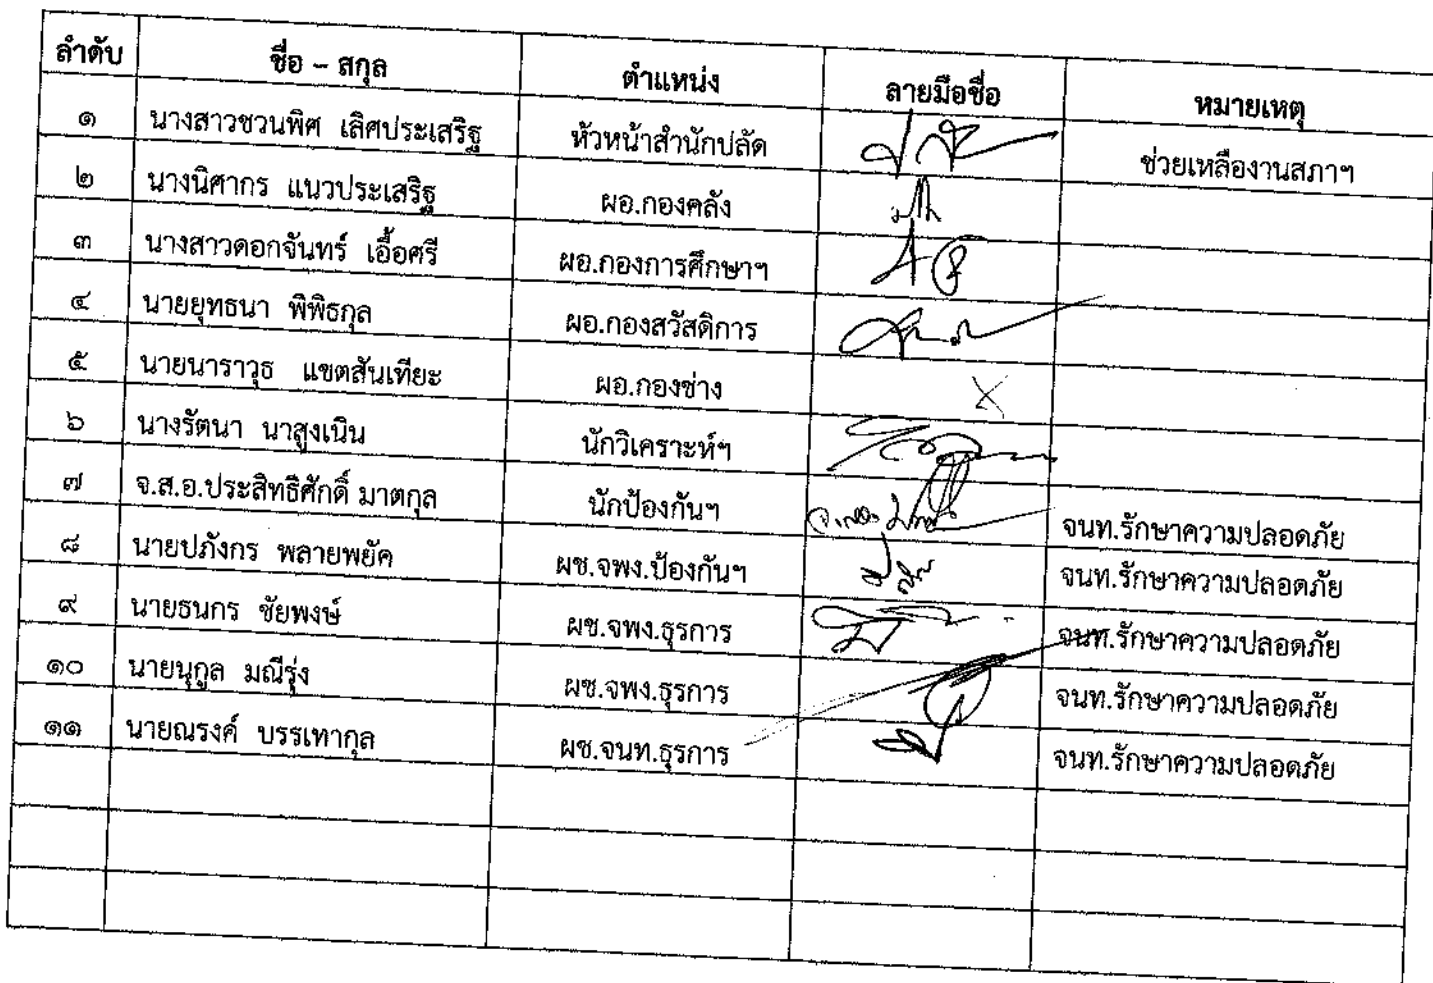 ลำดับ ชื่อ – สกุล ตำแหน่ง ลายมือชื่อ หมายเหตุ
๑ นางสาวชวนพิศ เลิศประเสริฐ หัวหน้าสำนักปลัด ช่วยเหลืองานสภาฯ
๒ นางนิศากร แนวประเสริฐ ผอ.กองคลัง
๓ นางสาวดอกจันทร์ เอื้อศรี ผอ.กองการศึกษาฯ
๔ นายยุทธนา พิพิธกุล ผอ.กองสวัสดิการ
๕ นายนาราวุธ แขตสันเทียะ ผอ.กองช่าง X
๖ นางรัตนา นาสูงเนิน นักวิเคราะห์ฯ
๗ จ.ส.อ.ประสิทธิศักดิ์ มาตกุล นักป้องกันฯ จนท.รักษาความปลอดภัย
๘ นายปภังกร พลายพยัค ผช.จพง.ป้องกันฯ จนท.รักษาความปลอดภัย
๙ นายธนกร ชัยพงษ์ ผช.จพง.ธุรการ จนท.รักษาความปลอดภัย
๑๐ นายนุกูล มณีรุ่ง ผช.จพง.ธุรการ จนท.รักษาความปลอดภัย
๑๑ นายณรงค์ บรรเทากุล ผช.จนท.ธุรการ จนท.รักษาความปลอดภัย